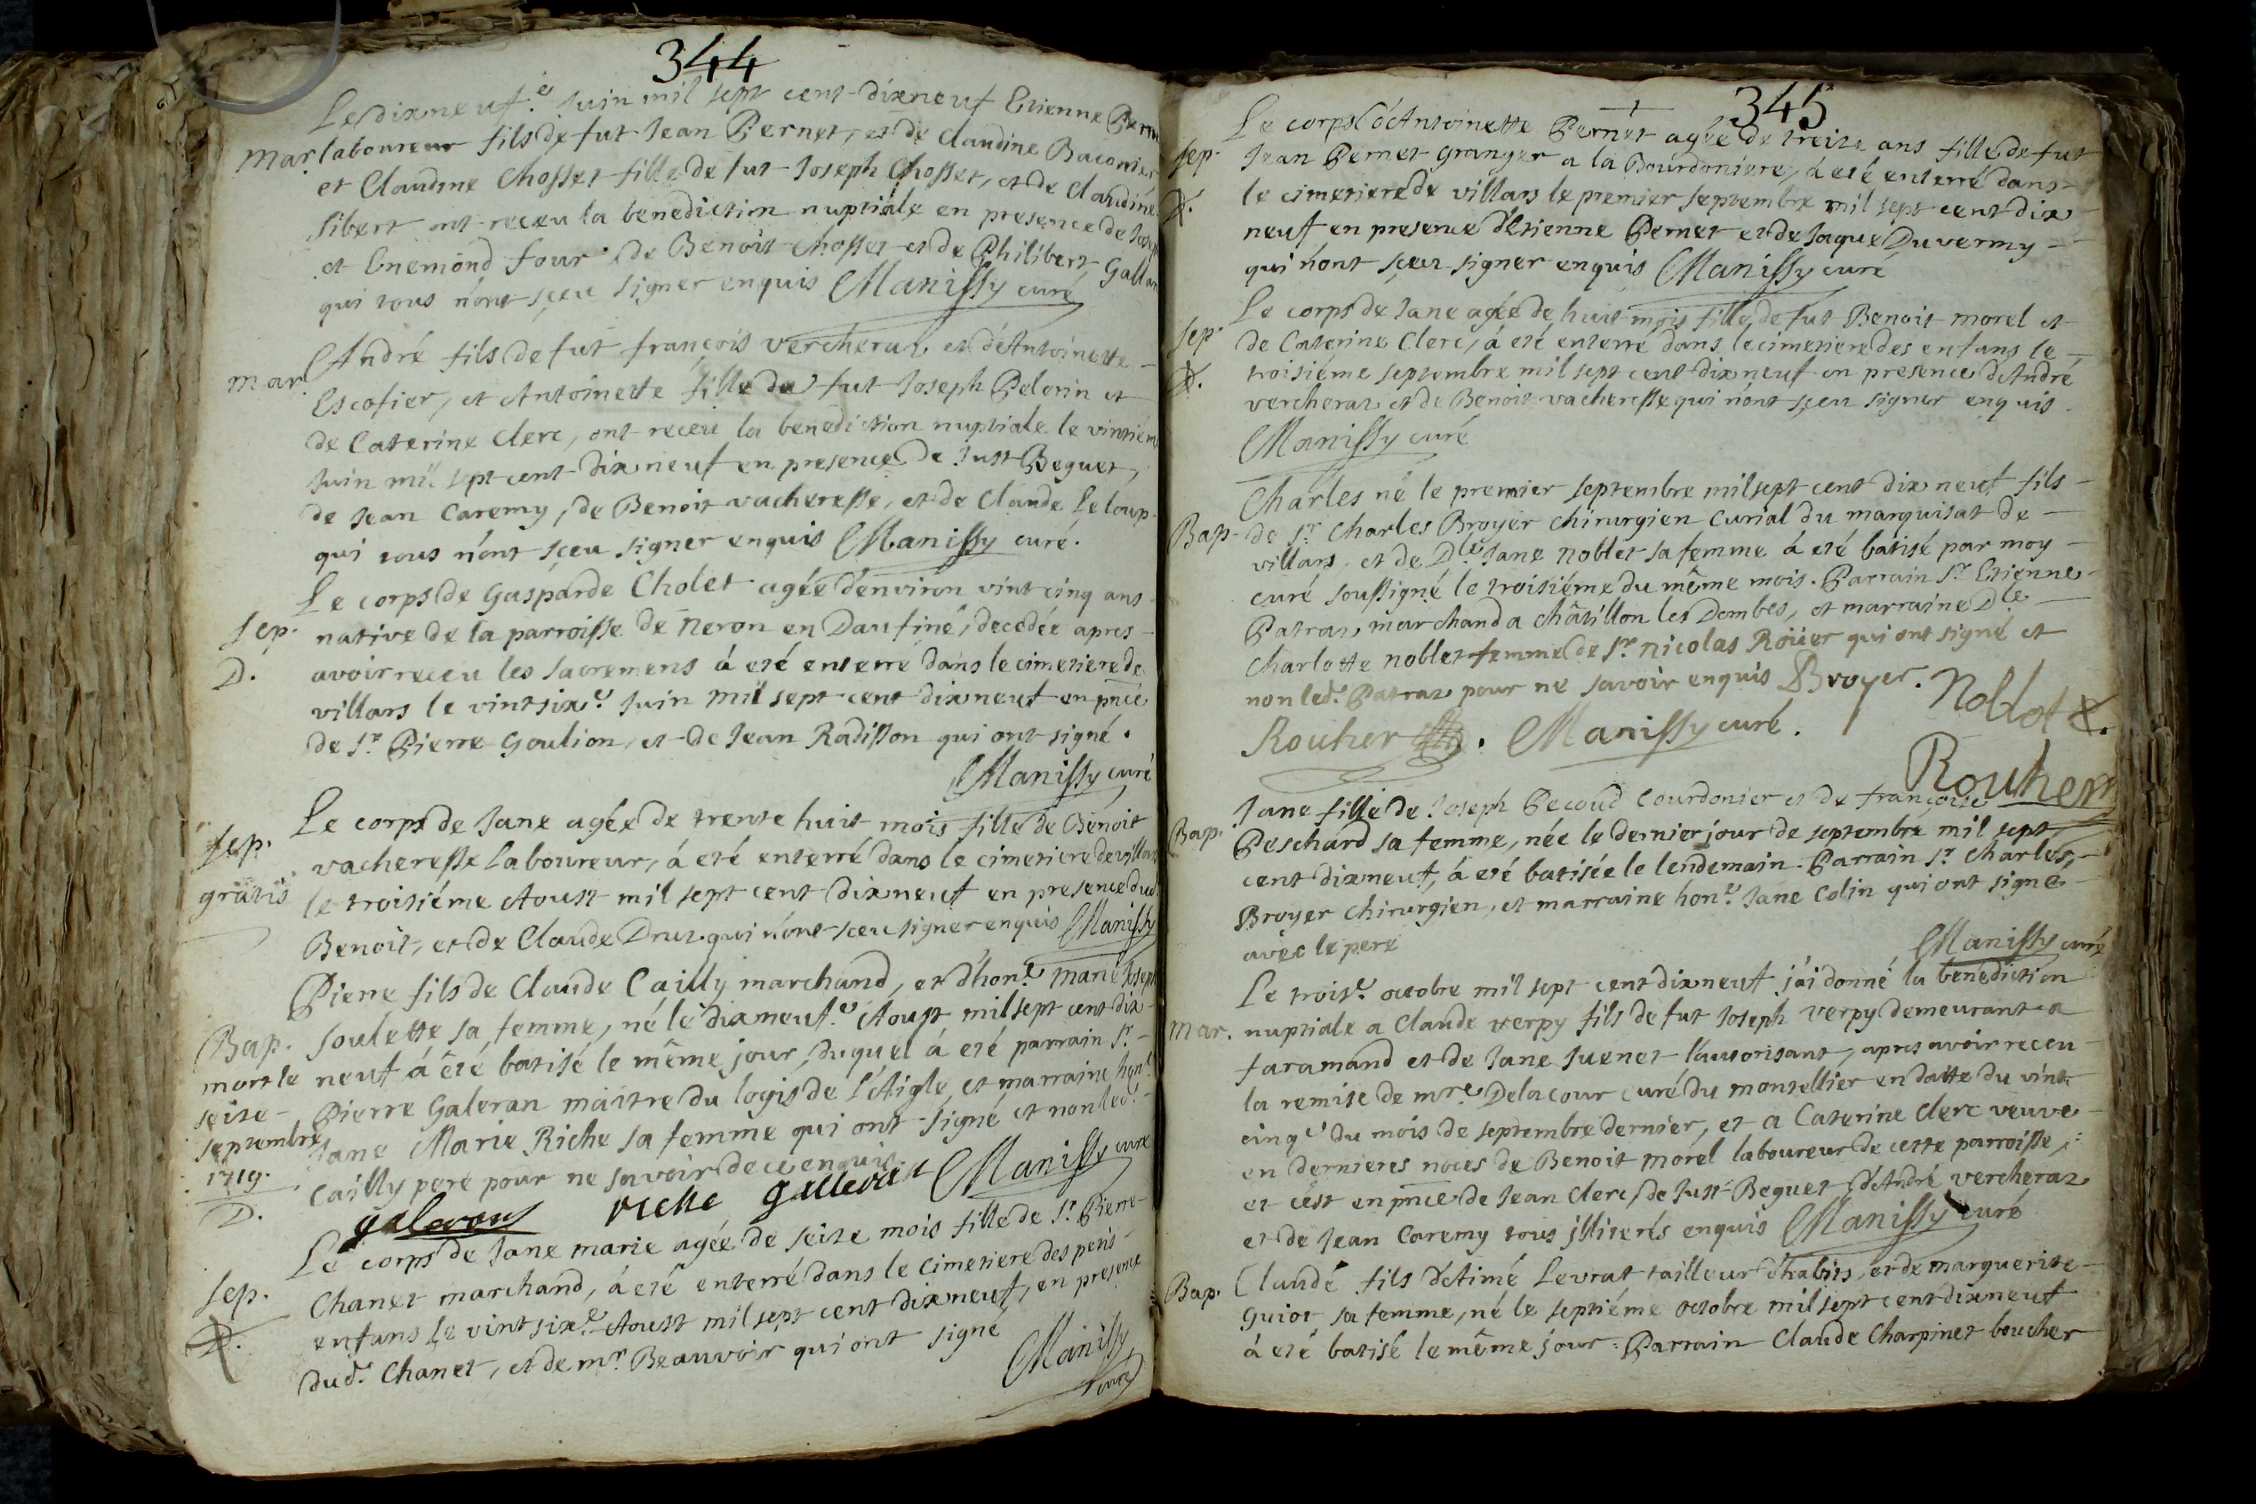 344
Le dixneuf.e Juin mil sept cent dixneuf Etienne
Mar. laboureur fils de fut Jean Pernet, et de Claudine Baconier
et Claudine Chosset fille de fut Joseph Chosset, et de Claudine
Sibert ont receu la benediction nuptiale en presence de
et Enemond four de Benoit Chosset et de Philibert
qui tous n'ont sçeu signer enquis Manissy curé
Mar. André fils de fut françois vercheraz et d'Antoinette
Escofier, et Antoinette fille de fut Joseph Pelorin et
de Caterine Clerc, ont receu la benediction nuptiale le vintiem
Juin mil sept cent dixneuf en presence de Just Beguet,
de Jean Caremy, de Benoit vacheresse, et de Claude Leloup
qui tous n'ont sçeu signer enquis Manissy curé.
Le corps de Gasparde Cholet agée d'environ vint cinq ans
Sep. native de la parroisse de Neron en Daufiné, decedée apres
D. avoir receu les sacremens á eté enterré dans le cimetiere de
villars le vintsix.e Juin mil sept cent dixneuf en pnce
de Sr. Pierre Goulion, et de Jean Radisson qui ont signé.
Manissy curé
Le corps de Jane agée de trente huit mois fille de Benoit
Sep. vacheresse Laboureur, á eté enterré dans le cimetiere de villars
gratis le troisiéme Aoust mil sept cent dixneuf en presence dud
Benoit, et de Claude Druz qui n'ont sceu signer enquis Manissy
Pierre fils de Claude Cailly marchand, et d'hon.e marie Joseph
Bap. Soulette sa femme, né le dixneuf.e Aoust mil sept cent dix-
mort le neuf á été batisé le même jour, duquel á eté parrain Sr.
seize Pierre Galeran maitre du logis de L'Aigle, et marraine hon.e
septembre Jane Marie Riche sa femme qui ont signé et non led.
1719. Cailly pere pour ne savoir de ce enquis.
D. galerans riche gallerant Manissy curé
Le corps de Jane marie agée de seize mois fille de Sr. Pierre
Sep. Chanet marchand, á eté enterré dans le cimetiere des petis
D. enfans Le vintsix.e Aoust mil sept cent dixneuf, en presence
dud. Chanet, et de mr. Beauvoir qui ont signé Manissy
curé
345
Le corps d'Antoinette Pernet agée de treize ans fille de fut
Sep. Jean Pernet granger a la Bourdoniere, á eté enterré dans
D. le cimetiere de villars le premier septembre mil sept cent dix
neuf en presence d'Etienne Pernet et de Jaque Duvermy
qui n'ont sçeu signer enquis Manissy curé
Le corps de Jane agée de huit mois fille de fut Benoit morel et
Sep. de Caterine Clerc, á eté enterré dans le cimetiere des enfans le
D. troisiéme septembre mil sept cent dixneuf en presence d'André
vercheraz et de Benoit vacheresse qui n'ont sçeu signer enquis.
Manissy curé
Charles né le premier septembre mil sept cent dix neuf fils
Bap. de Sr. Charles Broyer Chirurgien Curial du marquisat de
villars, et de Dle. Jane noblet sa femme á eté batisé par moy
curé soussigné le troisiéme du même mois. Parrain Sr. Etienne
Patraz marchand a châtillon les Dombes, et marraine Dle.
Charlotte noblet femme de Sr. nicolas Roüer qui ont signé et
non led. Patraz pour ne savoir enquis Broyer. Noblot
Rouher. Manissy curé.
Rouher
Jane fille de Joseph Pecoud Courdonier et de françoise
Bap. Peschard sa femme, née le dernier jour de septembre mil sept
cent dixneuf, á eté batisée le lendemain. Parrain Sr. Charles
Broyer Chirurgien, et marraine hon.e Jane Colin qui ont signé
avec le pere
Manissy curé
Le trois.e octobre mil sept cent dixneuf j'ai donné la benediction
Mar. nuptiale a Claude verpy fils de fut Joseph verpy demeurant a
faramand et de Jane Juenet l'autorisant, apres avoir receu
la remise de mre. Delacour curé du montellier en datte du vint
cinq.e du mois de septembre dernier, et a Caterine Clerc veuve
en dernieres noces de Benoit morel laboureur de cette parroisse,
et c'est en pnce de Jean Clerc, de Just Beguet, d'André vercheraz
et de Jean Caremy tous illiterés enquis Manissy curé
Bap. Claude fils d'Aimé Levrat tailleur d'habits, et de marguerite
Guiot sa femme, né le septiéme octobre mil sept cent dixneuf
á eté batisé le même jour. Parrain Claude Charpinet boucher